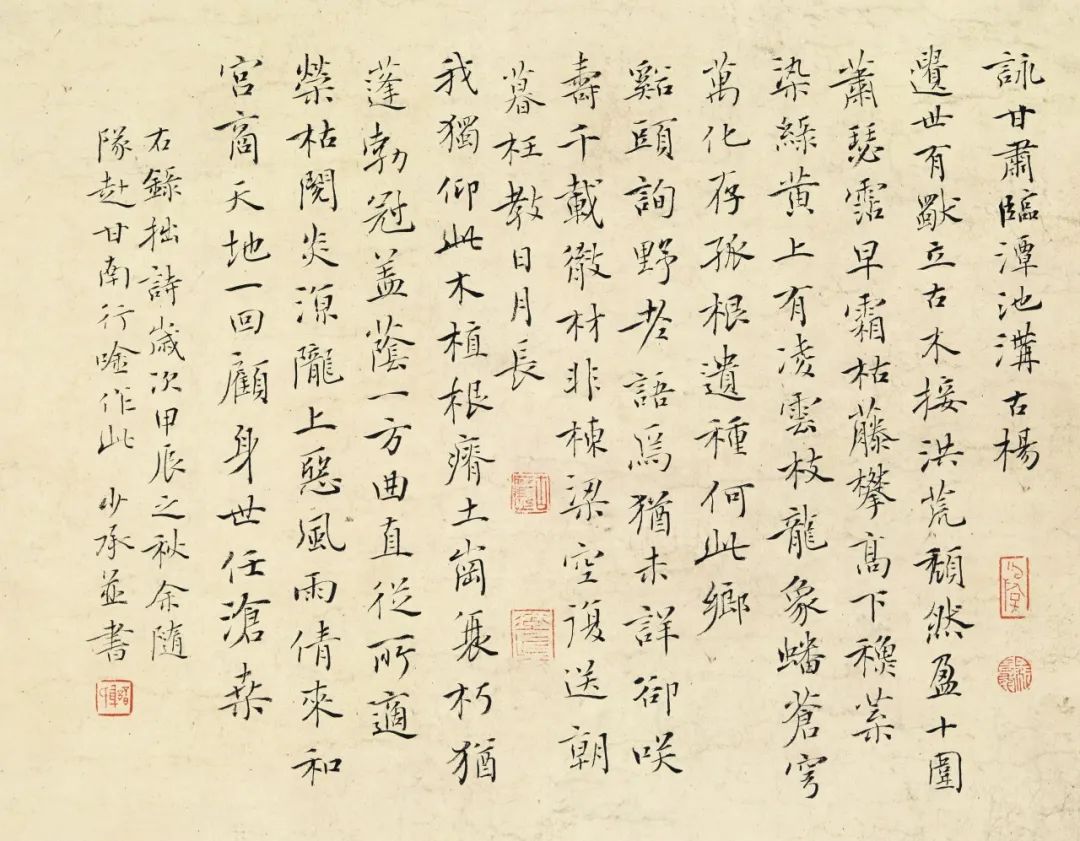 詠甘肅臨潭池溝古楊
遺世有立古木接洪荒頹然盈十圍
蕭瑟露早霜枯藤攀高下穠葉
染綠黃上有淩雲枝龍象蟠蒼穹
萬化存孤根遺種何此鄉
谿頭詢野老語焉猶未詳卻咲
壽千載材非棟梁空復送朝
暮枉教日月長
我獨仰此木植根瘠土崗朽猶
蓬勃冠蓋蔭一方曲直從所適
榮枯閱炎涼隴上惡風雨倩來和
宮商天地一回顧身世任滄桑
右錄拙詩歲次甲辰之秋余隨
隊赴甘南行唫作此 少承並書